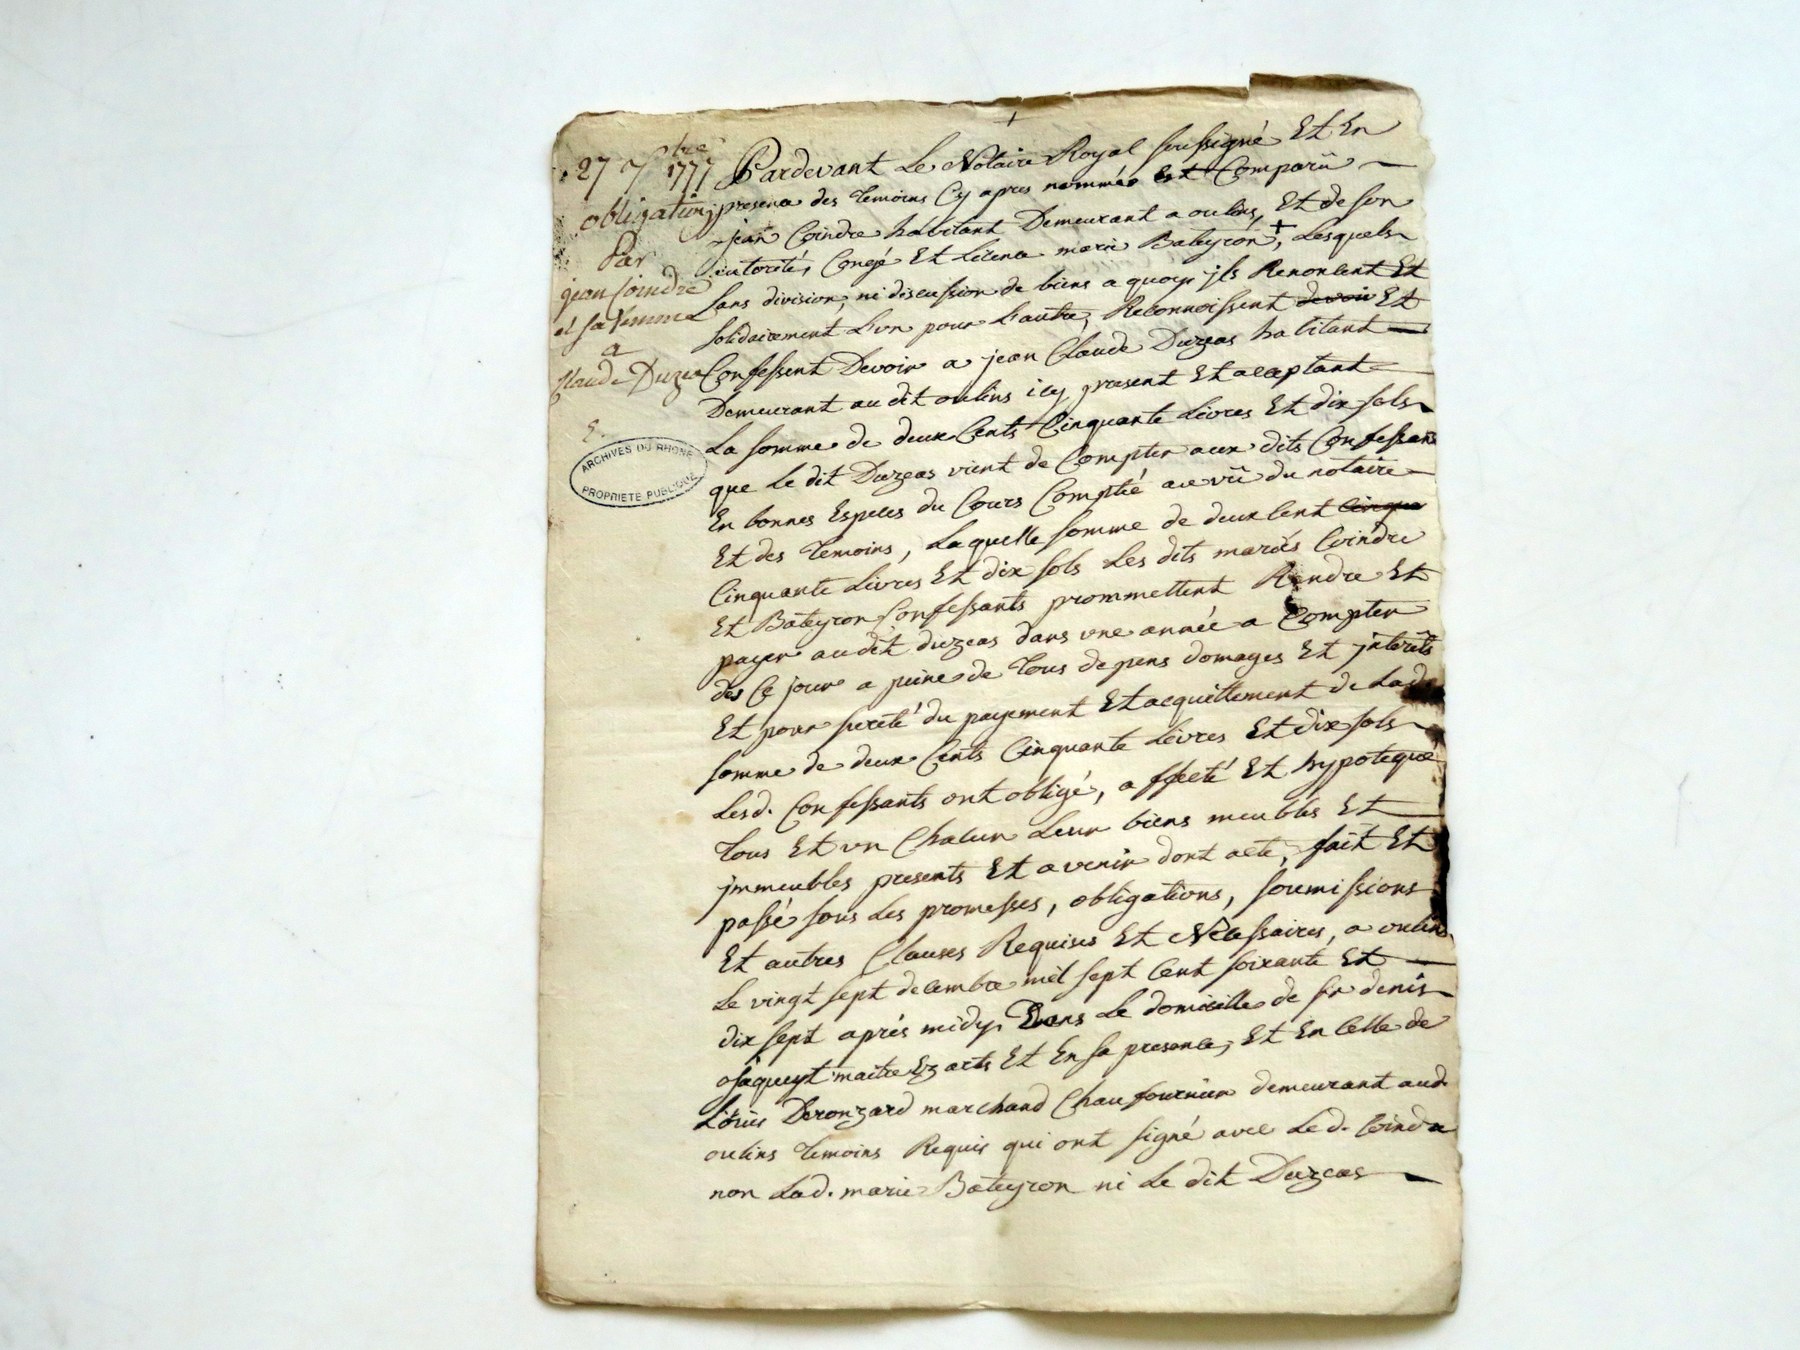 27 7bre 1777
obligation
Par
jean Coindre
et sa femme
a
Claude Duzeas
ARCHIVES DU RHONE
PROPRIETE PUBLIQUE
Pardevant Le Notaire Royal soussigné Et En
presence des temoins Cy apres nommés Est Comparu
jean Coindre habitant Demeurant a oulins, Et de son
autorité, Congé Et Licence marie Bateyron +, Lesquels
sans division, ni discussion de biens a quoy ils Renoncent Et
solidairement L'un pour L'autre, Reconnoissent devoir Et
Confessent Devoir a jean Claude Duzeas habitant
Demeurant au dit oulins icy present Et acceptant
La somme de deux Cents Cinquante Livres Et dix sols
que Le dit Duzeas vient de Compter aux dits Confessants
En bonnes Especes du Cours Compté au vû du notaire
Et des temoins, Laquelle somme de deux Cent Cinqu
Cinquante Livres Et dix sols Les dits mariés Coindre
Et Bateyron Confessants prommettent Rendre Et
payer audit duzeas dans une année a Compter
des Ce jour a peine de tous depens domages Et interêts
Et pour sureté du payement Et acquittement de Lade
somme de deux Cents Cinquante Livres Et dix sols
Lesd. Confessants ont obligé, affecté Et hypoteque
tous Et un Chacun Leur biens meubles Et
immeubles presents Et avenir dont acte, fait Et
passé sous Les promesses, obligations, soumissions
Et autres Clauses Requises Et Necessaires, a oulins
Le vingt sept decembre mil sept Cent soixante Et
dix sept aprés midy. Dans Le domicille de sr denis
maitre Ez arts Et En sa presence, Et En Celle de
Loüis Deronzard marchand Chaufournier demeurant aud.
oulins temoins Requis qui ont signé avec Led. Coindre
non Lad. marie Bateyron ni Le dit Duzeas